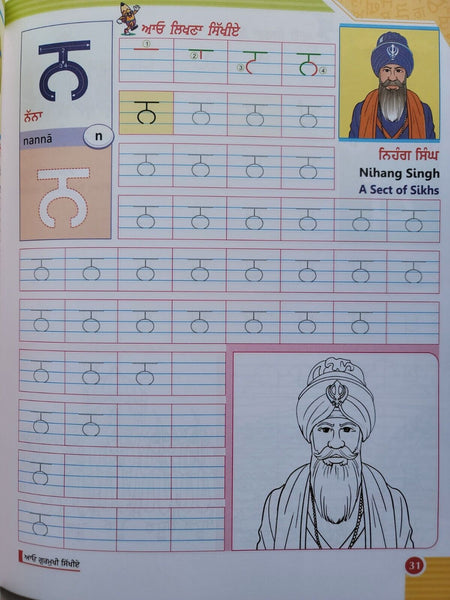 ਆਓ ਲਿਖਣਾ ਸਿੱਖੀਏ
ਨ
ਨੱਨਾ
nannā n
ਨ
① ② ③ ④
ਨ ਨ ਨ ਨ
ਨ ਨ ਨ ਨ
ਨਿਹੰਗ ਸਿੰਘ
Nihang Singh
A Sect of Sikhs
ਨ ਨ ਨ ਨ ਨ ਨ
ਨ ਨ ਨ ਨ ਨ ਨ ਨ ਨ
ਨ ਨ ਨ ਨ ਨ ਨ ਨ
ਨ ਨ ਨ
ਨ ਨ
ਨ
ਨ
ਆਓ ਗੁਰਮੁਖੀ ਸਿੱਖੀਏ
31